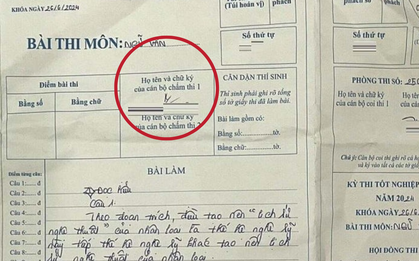 KHÓA NGÀY 25/6/2024
(Túi hoán vị)
phách
phách
BÀI THI MÔN: NGỮ VĂN
Số thứ tự
Số thứ tự
Điểm bài thi
Bằng số
Bằng chữ
Họ tên và chữ ký
của cán bộ chấm thi 1
Họ tên và chữ ký
của cán bộ chấm thi 2
CĂN DẶN THÍ SINH
Thí sinh phải ghi rõ tổng
số tờ giấy thi đã làm bài.
Bài làm gồm có:
Bằng số: tờ.
Bằng chữ: tờ.
PHÒNG THI SỐ: 250
Họ tên và chữ ký
của cán bộ coi thi 1
Điểm từng câu:
Câu 1: đ
Câu 2: đ
Câu 3: đ
Câu 4: đ
Câu 5: đ
Câu 6: đ
Câu 7: đ
Câu 8: đ
BÀI LÀM
I, Đọc hiểu
Câu 1.
Theo đoạn trích, điều tạo nên "lịch sử
nghệ thuật" của nhân loại là thế hệ nghệ sỹ
này tiếp thế hệ nghệ sỹ khác tạo nên lịch
sử nghệ thuật của nhân loại.
KỲ THI TỐT NGHIỆP
NĂM 2024
KHÓA NGÀY 25/6
BÀI THI MÔN: NGỮ
HỘI ĐỒNG THI